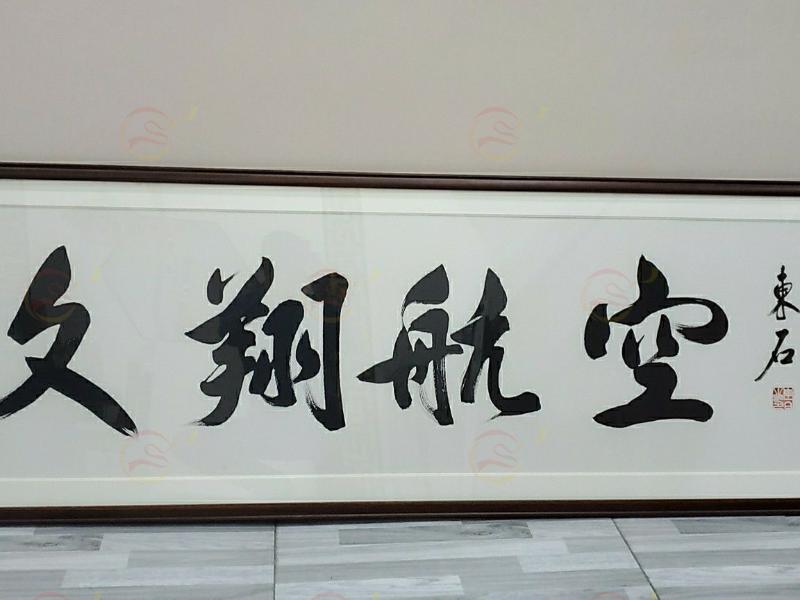 文翔航空
東石